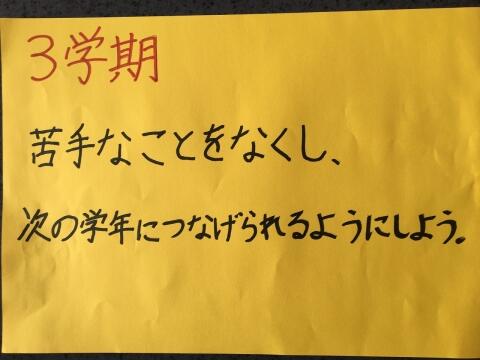 3学期
苦手なことをなくし、
次の学年につなげられるようにしよう。